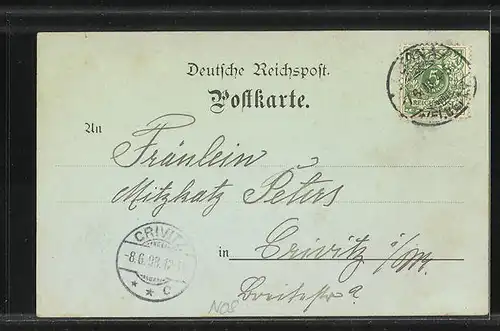 Deutsche Reichspost.
Postkarte.
5
REICHSPOST
An
Fräulein
Peters
in Crivitz i/M.
CRIVITZ
-8.6.98.
* * c
Breitestr